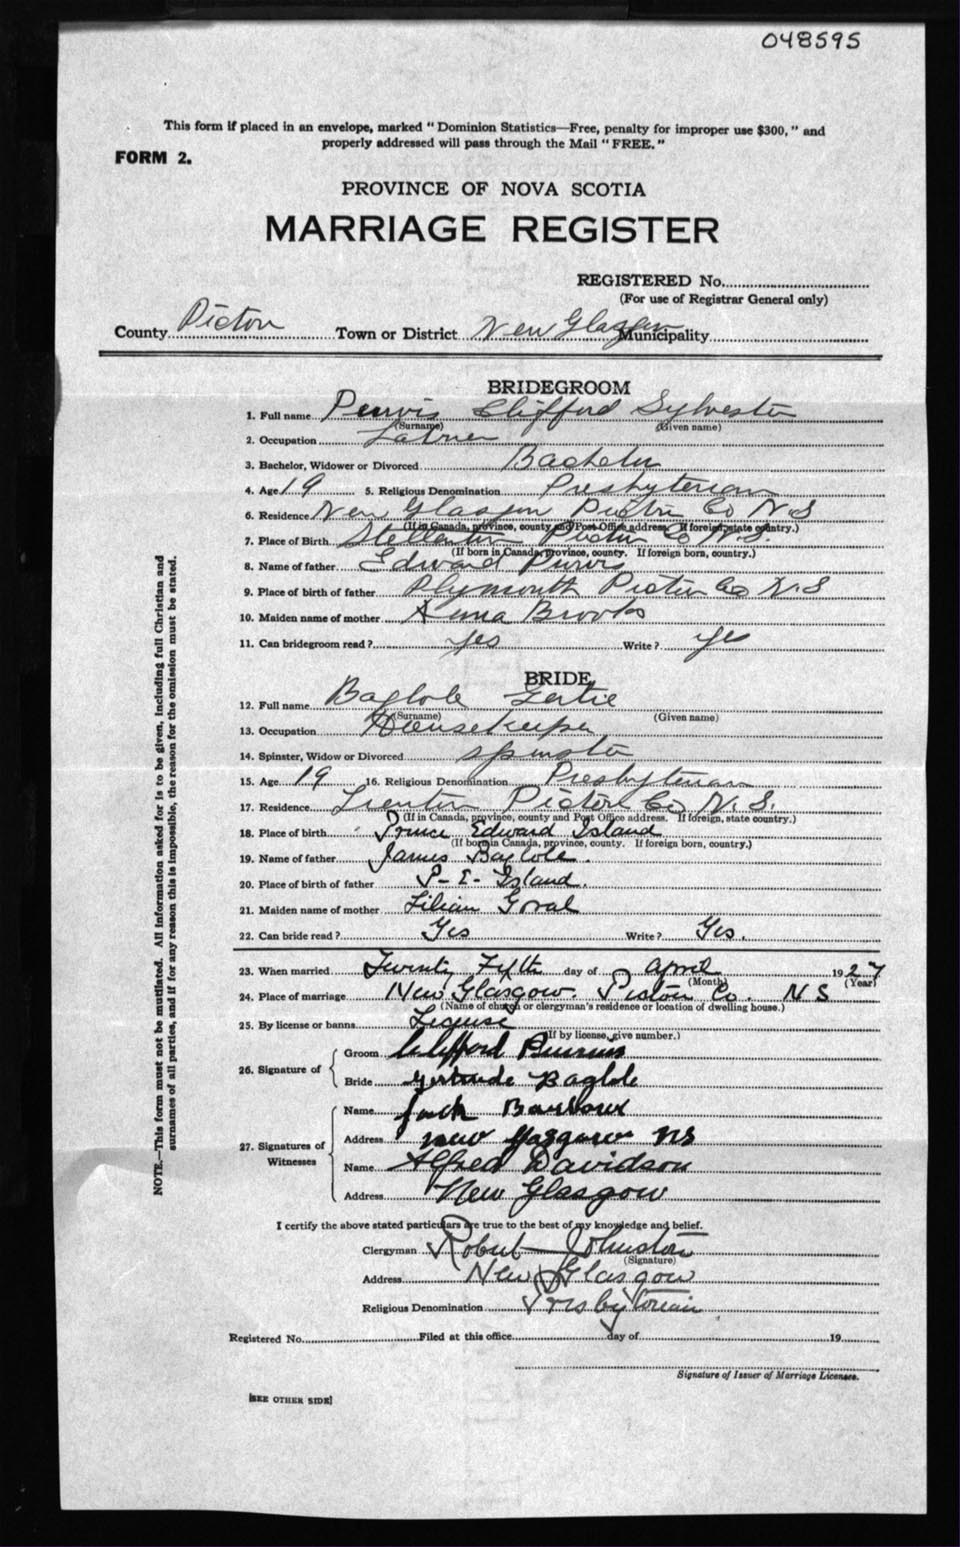 048595
This form if placed in an envelope, marked "Dominion Statistics—Free, penalty for improper use $300," and
properly addressed will pass through the Mail "FREE."
FORM 2.
PROVINCE OF NOVA SCOTIA
MARRIAGE REGISTER
REGISTERED No.
(For use of Registrar General only)
County Pictou Town or District New Glasgow Municipality
BRIDEGROOM
1. Full name Purvis Clifford Sylvester
(Surname) (Given name)
2. Occupation Labrer
3. Bachelor, Widower or Divorced Bachelor
4. Age 19 5. Religious Denomination Presbyterian
6. Residence New Glasgow Pictou Co N.S
(If in Canada, province, county and Post Office address. If foreign, state country.)
7. Place of Birth Stellarton Pictou Co N.S.
(If born in Canada, province, county. If foreign born, country.)
8. Name of father Edward Purvis
9. Place of birth of father Plymouth Pictou Co N.S
10. Maiden name of mother Anna Brooks
11. Can bridegroom read? yes Write? yes
BRIDE
12. Full name Baglole Gertie
(Surname) (Given name)
13. Occupation Housekeeper
14. Spinster, Widow or Divorced spinster
15. Age 19 16. Religious Denomination Presbyterian
17. Residence Trenton Pictou Co N.S.
(If in Canada, province, county and Post Office address. If foreign, state country.)
18. Place of birth Prince Edward Island
(If born in Canada, province, county. If foreign born, country.)
19. Name of father James Baglole.
20. Place of birth of father P-E-Island.
21. Maiden name of mother Lilian
22. Can bride read? Yes Write? Yes.
23. When married Twenty Fifth day of April 1927
(Month) (Year)
24. Place of marriage New Glasgow. Pictou Co. NS
(Name of church or clergyman's residence or location of dwelling house.)
25. By license or banns
(If by license, give number.)
26. Signature of
Groom Clifford
Bride Gertrude Baglole
27. Signatures of Witnesses
Name Jack Barbour
Address new Glasgow NS
Name Alfred Davidson
Address New Glasgow
I certify the above stated particulars are true to the best of my knowledge and belief.
Clergyman Robert Johnston
(Signature)
Address New Glasgow
Religious Denomination Presbyterian
Registered No. Filed at this office day of 19
Signature of Issuer of Marriage Licenses.
[SEE OTHER SIDE]
NOTE.—This form must not be mutilated. All information asked for is to be given, including full Christian and
surnames of all parties, and if for any reason this is impossible, the reason for the omission must be stated.